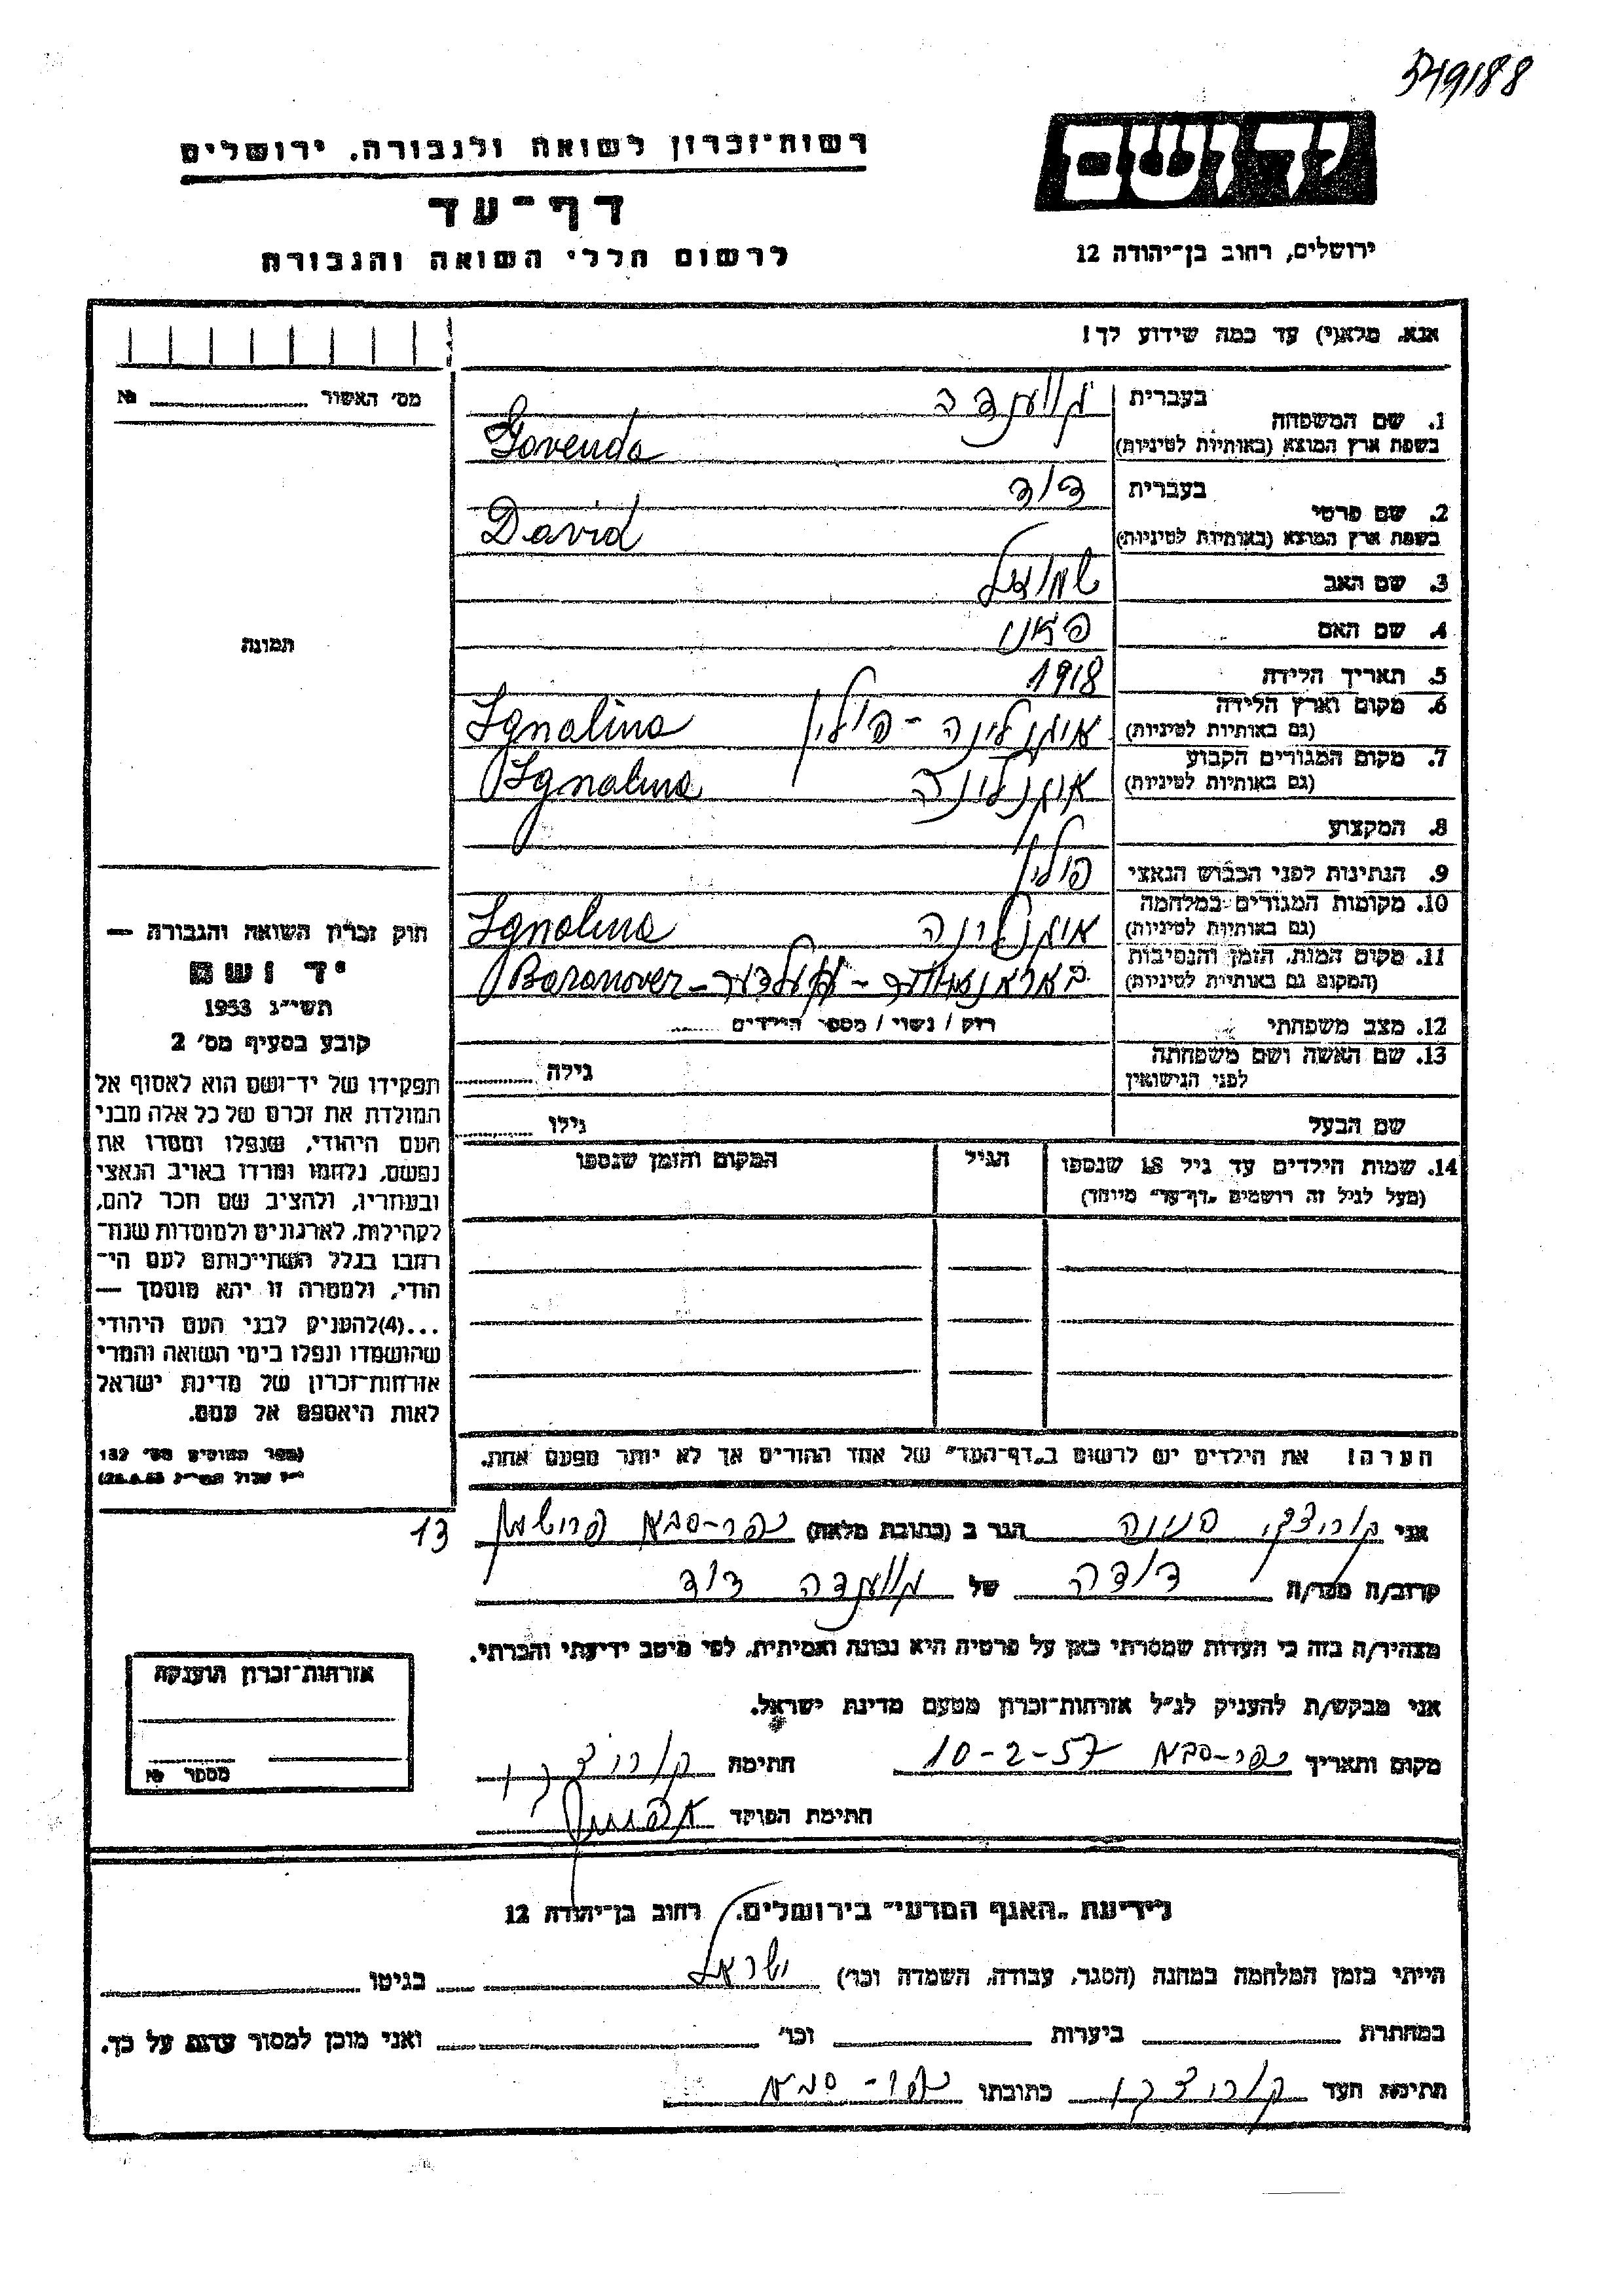 549188
יד ושם
ירושלים, רחוב בן־יהודה 12
רשות־זכרון לשואה ולגבורה, ירושלים
דף־עד
לרשום חללי השואה והגבורה
אנא, מלא(י) עד כמה שידוע לך!
מס׳ האשור № 
תמונה
חוק זכרון השואה והגבורה —
יד ושם
תשי״ג 1953
קובע בסעיף מס׳ 2
תפקידו של יד־ושם הוא לאסוף אל
המולדת את זכרם של כל אלה מבני
העם היהודי, שנפלו ומסרו את
נפשם, נלחמו ומרדו באויב הנאצי
ובעוזריו, ולהציב שם וזכר להם,
לקהילות, לארגונים ולמוסדות שנח־
רבו בגלל השתייכותם לעם הי־
הודי, ולמטרה זו יהא מוסמך —
...(4)להעניק לבני העם היהודי
שהושמדו ונפלו בימי השואה והמרי
אזרחות־זכרון של מדינת ישראל
לאות היאספם אל עמם.
(ספר החוקים מס׳ 132
1. שם המשפחה בעברית גווענדה
בשפת ארץ המוצא (באותיות לטיניות) Govenda
2. שם פרטי בעברית דוד
בשפת ארץ המוצא (באותיות לטיניות) David
3. שם האב שמואל
4. שם האם
5. תאריך הלידה 1918
6. מקום וארץ הלידה (גם באותיות לטיניות) איגנלינה - פולין Ignalina
7. מקום המגורים הקבוע (גם באותיות לטיניות) איגנלינה Ignalina
8. המקצוע
9. הנתינות לפני הכבוש הנאצי פולין
10. מקומות המגורים במלחמה (גם באותיות לטיניות) איגנלינה Ignalina
11. מקום המות, הזמן והנסיבות (המקום גם באותיות לטיניות) Baranover
12. מצב משפחתי רוק / נשוי / מספר הילדים
13. שם האשה ושם משפחתה לפני הנישואין גילה
שם הבעל גילו
14. שמות הילדים עד גיל 18 שנספו הגיל המקום והזמן שנספו
(מעל לגיל זה רושמים „דף־עד״ מיוחד)
הערה! את הילדים יש לרשום ב„דף־העד״ של אחד ההורים אך לא יותר מפעם אחת.
אני הגר ב (כתובת מלאה) כפר-סבא 13
קרוב/ה מכר/ה דודה של גווענדה דוד
מצהיר/ה בזה כי העדות שמסרתי כאן על פרטיה היא נכונה ואמיתית, לפי מיטב ידיעתי והכרתי.
אני מבקש/ת להעניק לנ״ל אזרחות־זכרון מטעם מדינת ישראל.
מקום ותאריך כפר-סבא 10-2-57 חתימה
חתימת הפוקד
אזרחות־זכרון הוענקה
מספר №
לידיעת „האגף המדעי״ בירושלים, רחוב בן־יהודה 12
הייתי בזמן המלחמה במחנה (הסגר, עבודה, השמדה וכו׳) ישראל בגיטו
במחתרת ביערות וכו׳ ואני מוכן למסור עדות על כך.
חתימת העד כתובתו כפר-סבא